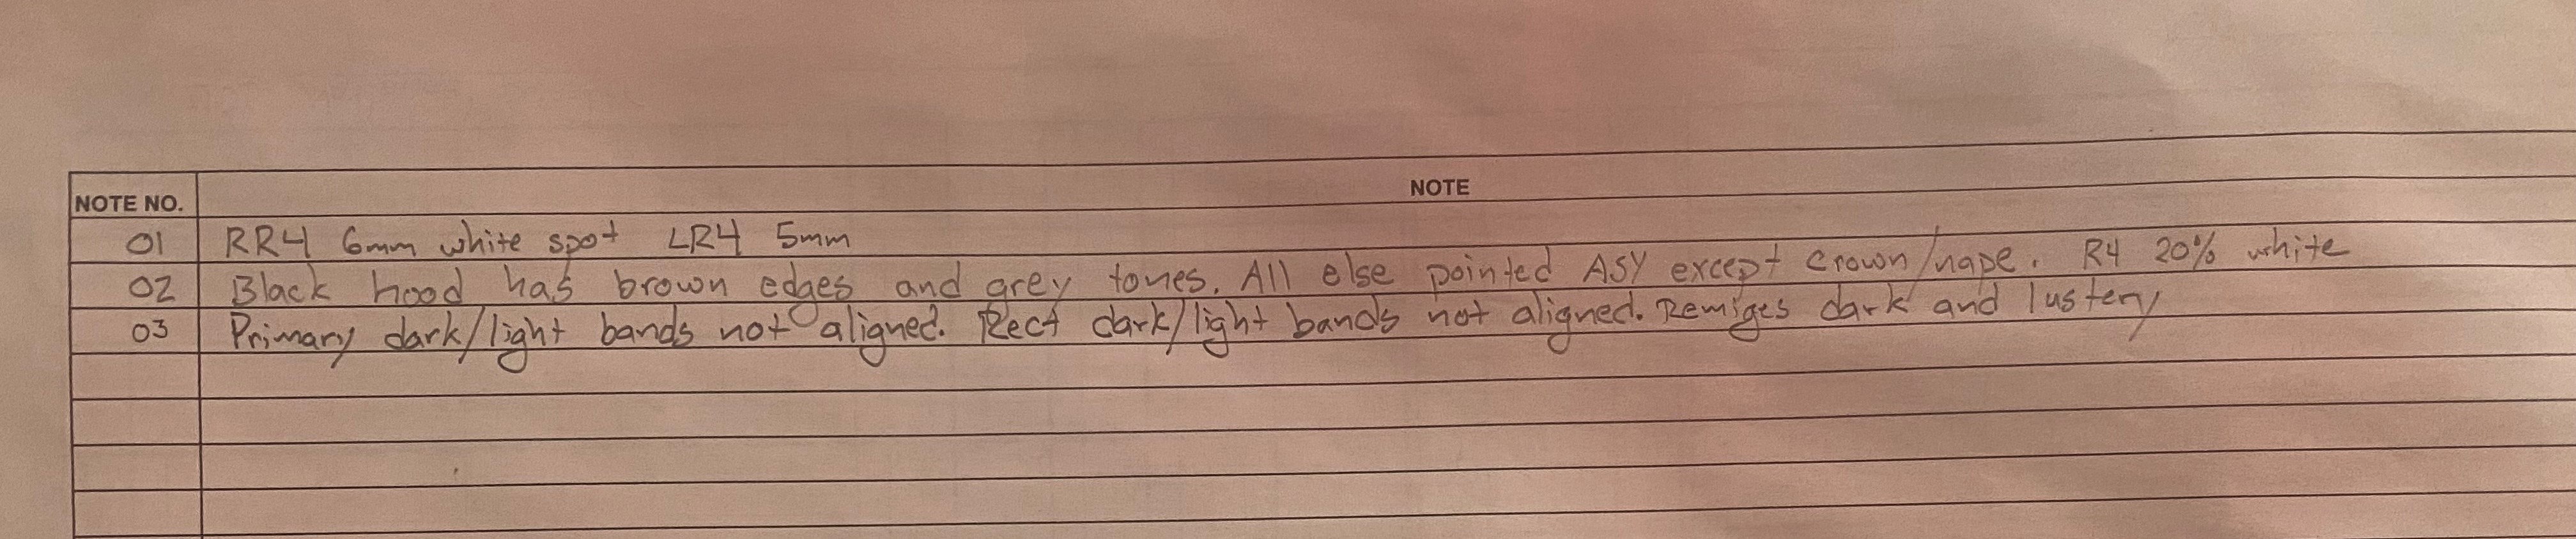 NOTE NO. NOTE
01 RR4 6mm white spot LR4 5mm
02 Black hood has brown edges and grey tones. All else pointed ASY except crown/nape. R4 20% white
03 Primary dark/light bands not aligned. Rect dark/light bands not aligned. Remiges dark and lustery